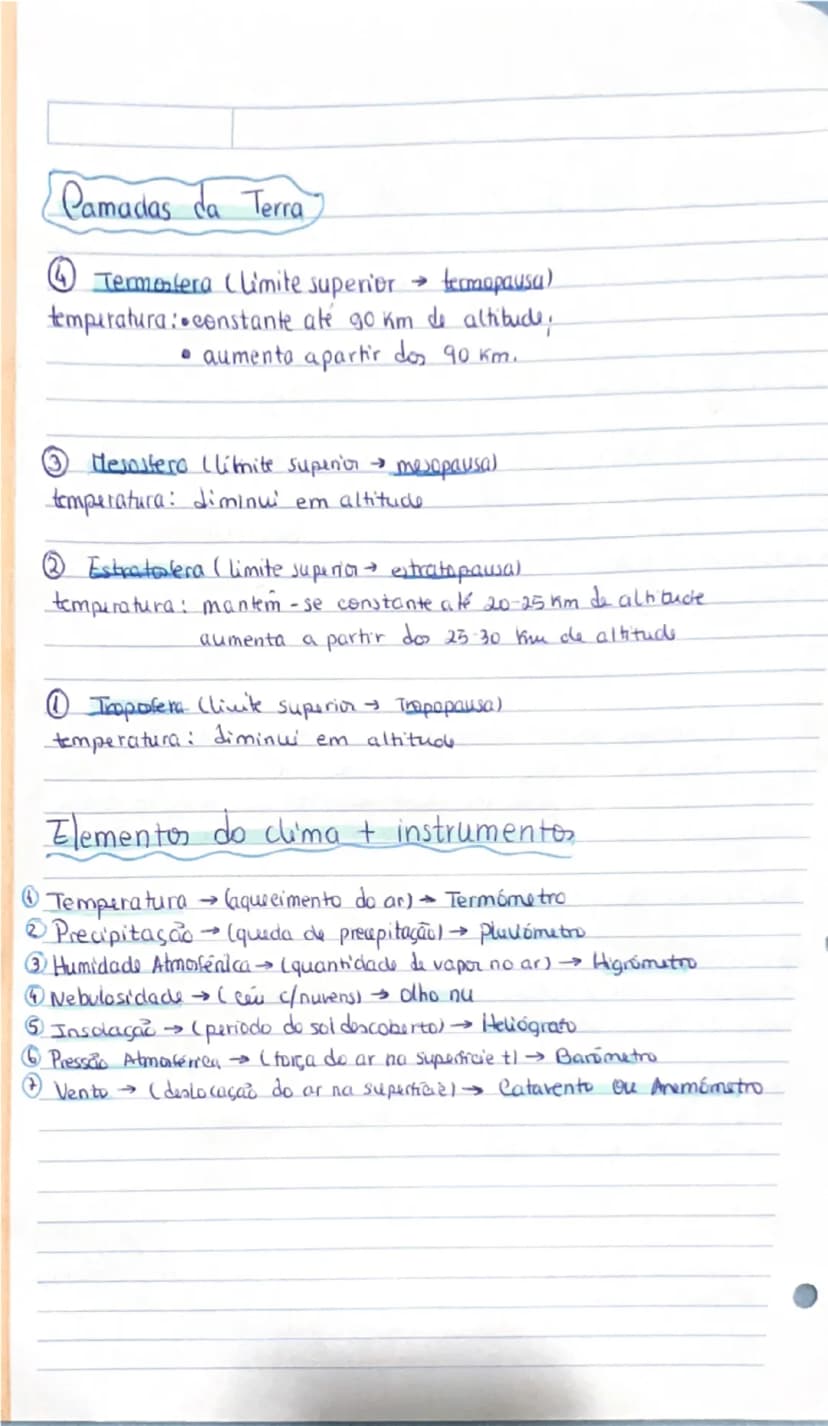 Camadas da Terra
④ Termosfera (limite superior → termopausa)
temperatura: • constante até 90 Km de altitude;
• aumenta apartir dos 90 Km.
③ Mesosfera (límite superior → mesopausa)
temperatura: diminui em altitude
② Estratosfera (limite superior → estratopausa)
temperatura: mantêm-se constante até 20-25 Km de altitude
aumenta a partir dos 25-30 Km de altitude
① Troposfera (limite superior → Tropopausa)
temperatura: diminui em altitude
Elementos do clima + instrumentos
① Temperatura → (aquecimento do ar) → Termómetro
② Precipitação → (queda de precipitação) → Pluviómetro
③ Humidade Atmosférica → (quantidade de vapor no ar) → Higrómetro
④ Nebulosidade → (céu c/nuvens) → olho nu
⑤ Insolação → (periodo do sol descoberto) → Heliógrafo
⑥ Pressão Atmosférica → (força do ar na superfície t) → Barómetro
⑦ Vento → (deslocação do ar na superfície) → Catavento ou Anemómetro